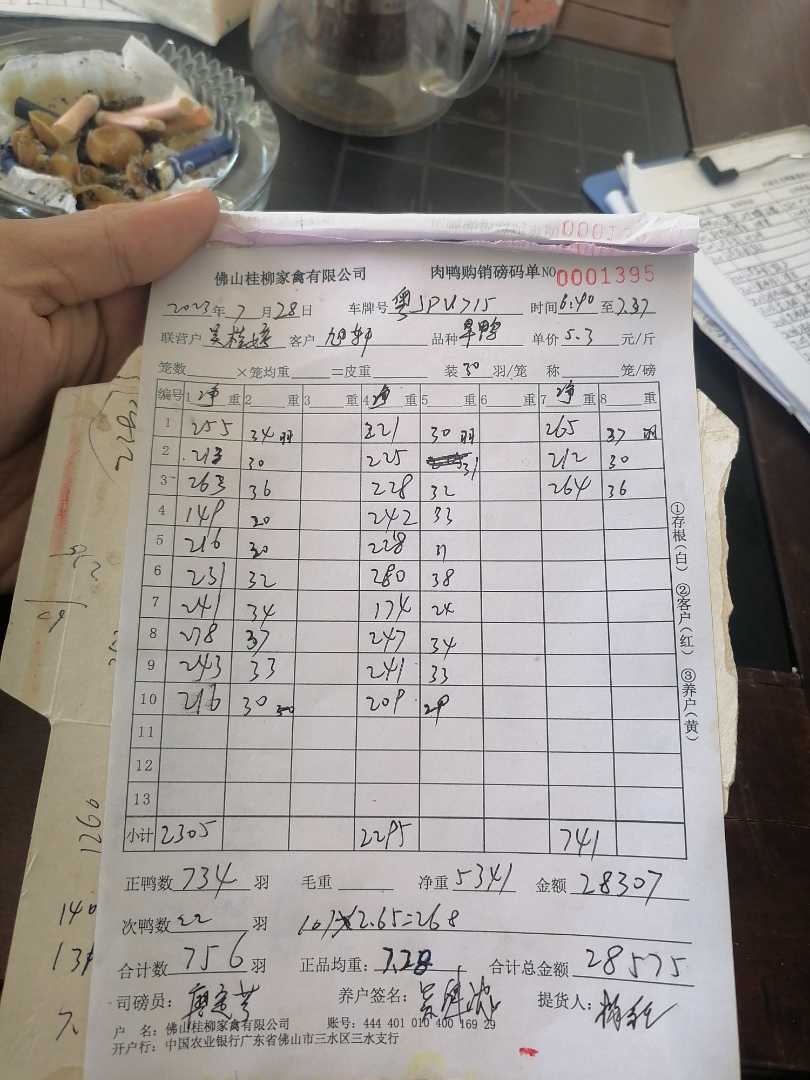 佛山桂柳家禽有限公司 肉鸭购销磅码单 NO 0001395
2023年7月28日 车牌号 粤JPU715 时间6:40至7.37
联营户 客户 旭轩 品种 旱鸭 单价 5.3 元/斤
笼数 ×笼均重 =皮重 装30羽/笼 称 笼/磅
编号 1 净 重 2 重 3 重 4 净 重 5 重 6 重 7 净 重 8 重
1 255 34羽 221 30羽 265 37羽
2 213 30 225 31 212 30
3 263 36 228 32 264 36
4 149 20 242 33
5 216 30 228
6 231 32 280 38
7 241 34 174 24
8 278 37 247 34
9 243 33 241 33
10 216 30 209 29
11
12
13
小计 2305 2295 741
正鸭数 734 羽 毛重 净重 5341 金额 28307
次鸭数 22 羽 101×2.65=268
合计数 756 羽 正品均重: 7.28 合计总金额 28575
司磅员: 养户签名: 提货人:
户 名: 佛山桂柳家禽有限公司 账号: 444 401 010 400 169 29
开户行: 中国农业银行广东省佛山市三水区三水支行
①存根(白) ②客户(红) ③养户(黄)
1260